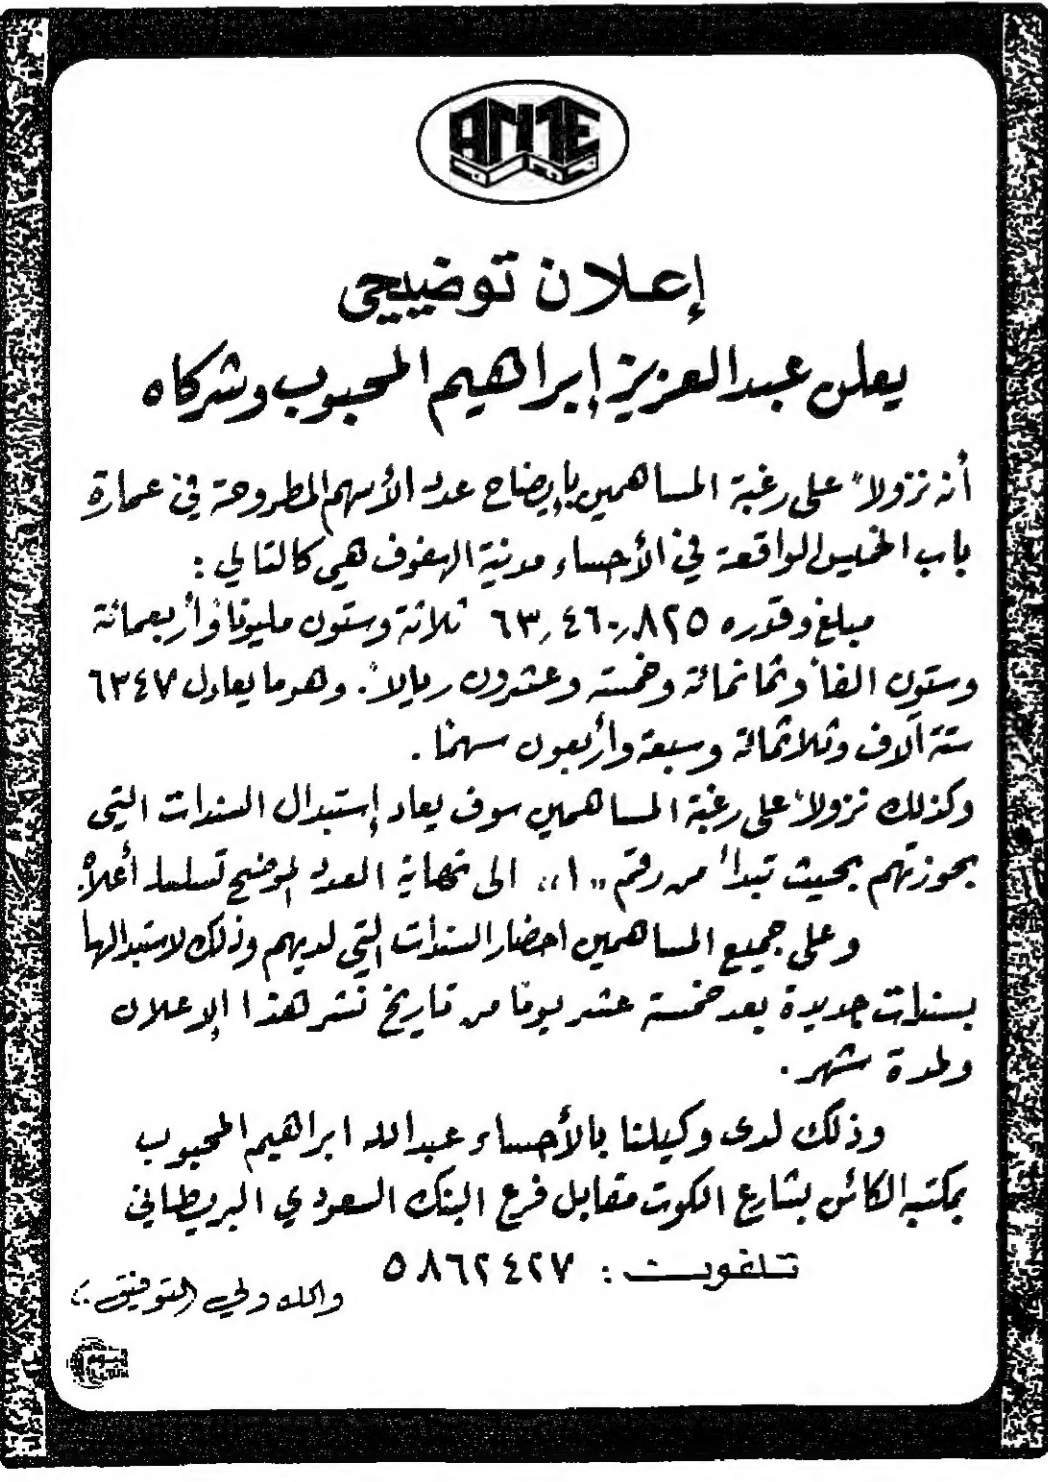 AME
إعلان توضيحي
يعلن عبدالعزيز إبراهيم المحبوب وشركاه
أنه نزولاً على رغبة المساهمين بإيضاح عدد الأسهم المطروحة في عمارة
باب الخميس الواقعة في الأحساء مدينة الهفوف هي كالتالي :
مبلغ وقدره ٦٣,٤٦٠,٨٢٥ ثلاثة وستون مليوناً وأربعمائة
وستون الفاً وثمانمائة وخمسة وعشرون ريالاً. وهو ما يعادل ٦٣٤٧
ستة آلاف وثلاثمائة وسبعة وأربعون سهماً .
وكذلك نزولاً على رغبة المساهمين سوف يعاد إستبدال السندات التي
بحوزتهم بحيث تبدأ من رقم ,,١,, الى نهاية العدد الموضح تسلسلا أعلاه.
وعلى جميع المساهمين احضار السندات التي لديهم وذلك لاستبدالها
بسندات جديدة بعد خمسة عشر يوماً من تاريخ نشر هذا الإعلان
ولمدة شهر .
وذلك لدى وكيلنا بالأحساء عبدالله ابراهيم المحبوب
بمكتبه الكائن بشارع الكوت مقابل فرع البنك السعودي البريطاني
تلفون : ٥٨٦٢٤٢٧
والله ولي التوفيق ..